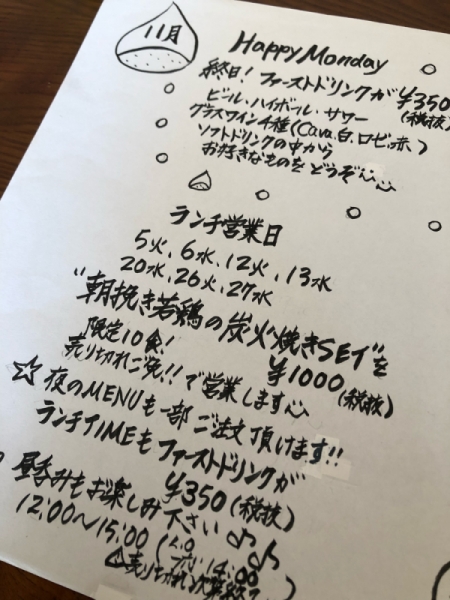 11月
Happy Monday
終日！ファーストドリンクが ¥350
(税抜)
ビール・ハイボール・サワー
グラスワイン4種(Cava、白、ロゼ、赤)
ソフトドリンクの中から
お好きなものをどうぞ
ランチ営業日
5火、6水、12火、13水
20水、26火、27水
"朝挽き若鶏の炭火焼きSET"を
限定10食！ ¥1000 (税抜)
売り切れご免!!で営業します
☆夜のMENUも一部ご注文頂けます!!
ランチTIMEもファーストドリンクが
¥350(税抜)
昼呑みもお楽しみ下さい♪♪
12:00～15:00 (L.O 14:00
売り切れ次第終了